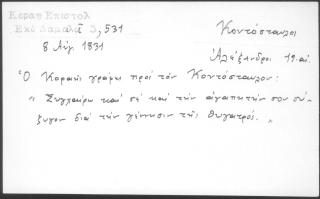 Κοραη Επιστολ
Εκδ Δαμαλᾶ 3,531
Κοντόσταυλοι
8 Αὐγ. 1831
Ἀλέξανδρος 19. αἰ.
Ὁ Κοραῆς γράφει πρὸς τὸν Κοντόσταυλον:
"Συγχαίρω καὶ σὲ καὶ τὴν ἀγαπητήν σου σύ-
ζυγον διὰ τὴν γέννησιν τῆς θυγατρός."